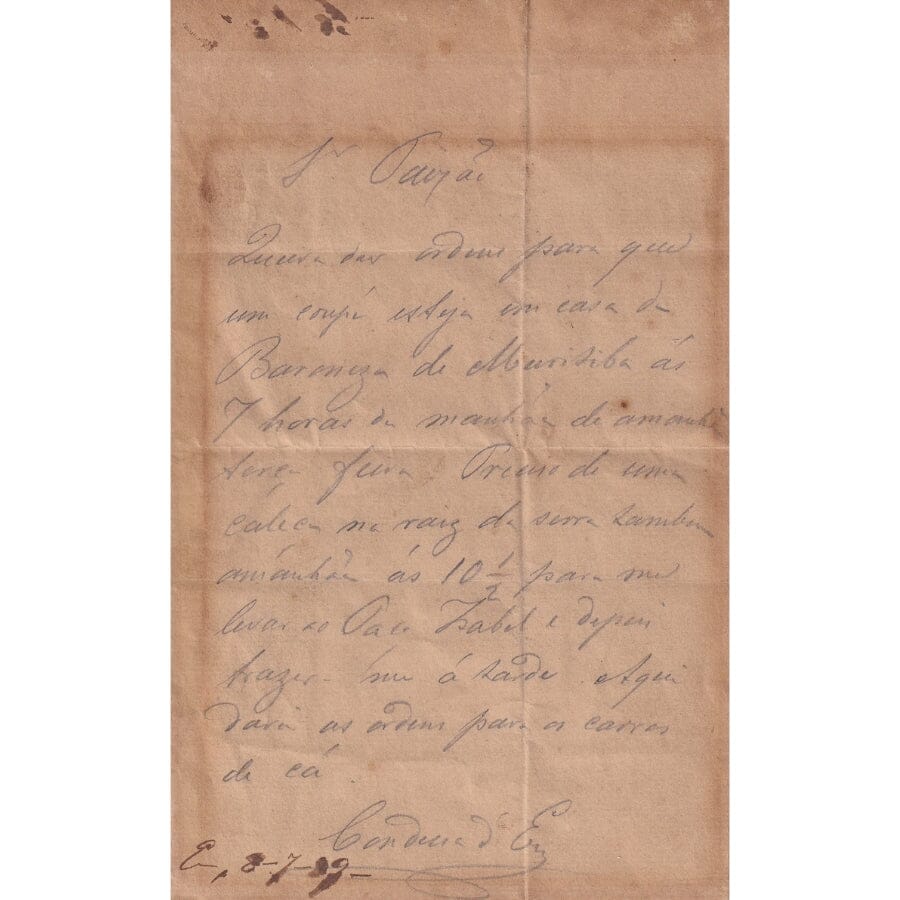 Sr Paixão
Queira dar ordens para que
um coupé esteja em casa da
Baroneza de Muritiba ás
7 horas da manhãa de amanhã
terça feira Preciso de uma
caléça na raiz da serra tambem
amanhãa ás 10 1/2 para me
levar ao Paço Isabel e depois
trazer-me á tarde. Aqui
darei as ordens para os carros
de cá
Condessa d'Eu
E, 8-7-89-